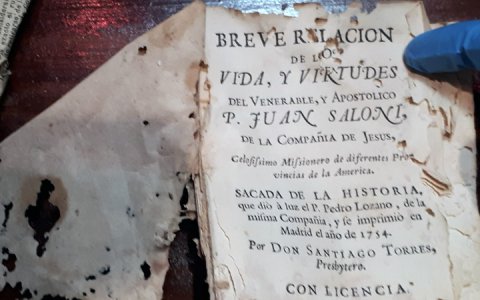 BREVE RELACION
DE LO
VIDA, Y VIRTUDES
DEL VENERABLE, Y APOSTOLICO
P. JUAN SALONI,
DE LA COMPAÑIA DE JESUS,
Celosissimo Missionero de diferentes Pro-
vincias de la America.
SACADA DE LA HISTORIA,
que diò à luz el P. Pedro Lozano, de la
misma Compañia, y se imprimiò en
Madrid el año de 1754.
Por DON SANTIAGO TORRES,
Presbytero.
CON LICENCIA.